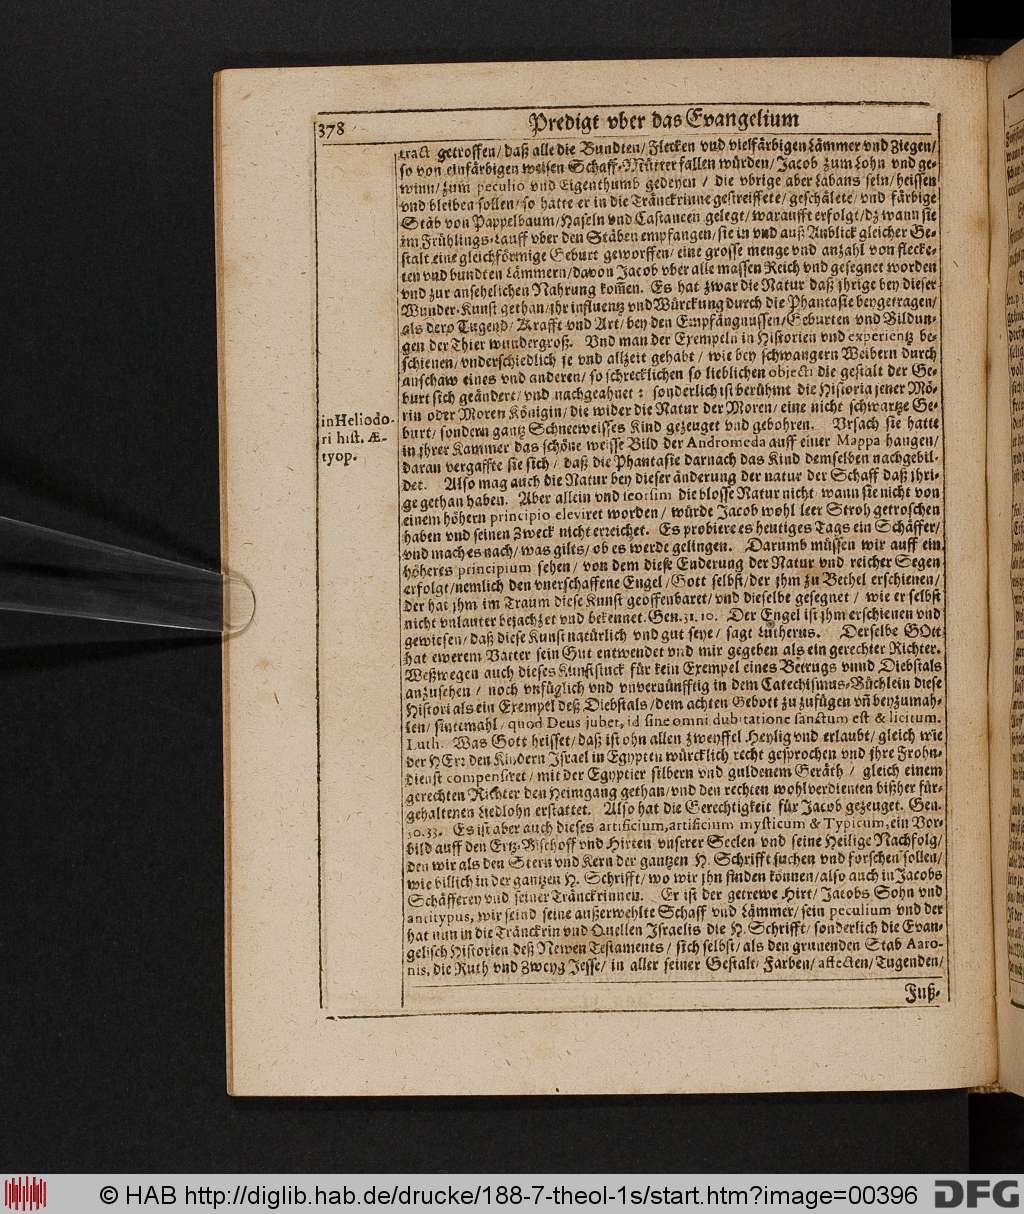 378
Predigt vber das Evangelium
tract getroffen/ daß alle die Bundten/ Flecken vnd vielfärbigen Lämmer vnd Ziegen/
so von einfärbigen weisen Schaff-Mütter fallen würden/ Jacob zum Lohn vnd ge-
winn/ zum peculio vnd Eigenthumb gedeyen / die vbrige aber Labans sein/ heissen
vnd bleiben sollen/ so hatte er in die Tränckrinne gestreiffete/ geschälete/ vnd färbige
Stäb von Pappelbaum/ Haseln vnd Castaneen gelegt/ warauff erfolgt/ dz wann sie
im Frühlings-Lauff vber den Stäben empfangen/ sie in vnd auß Anblick gleicher Ge-
stalt eine gleichförmige Geburt geworffen/ eine grosse menge vnd anzahl von flecke-
ten vnd bundten Lämmern/ davon Jacob vber alle massen Reich vnd gesegnet worden
vnd zur ansehelichen Nahrung kom̃en. Es hat zwar die Natur daß jhrige bey dieser
Wunder-Kunst gethan/ jhr influentz vnd Würckung durch die Phantasie beygetragen/
als dero Tugend/ Krafft vnd Art/ bey den Empfängnussen/ Geburten vnd Bildun-
gen der Thier wundergroß. Vnd man der Exempeln in Historien vnd experientz be-
schienen/ vnderschiedlich je vnd allzeit gehabt / wie bey schwangern Weibern durch
anschaw eines vnd anderen/ so schrecklichen so lieblichen objecti die gestalt der Ge-
burt sich geändert/ vnd nachgeahnet : sonderlich ist berühmt die Historia jener Mö-
rin oder Moren Königin/ die wider die Natur der Moren/ eine nicht schwartze Ge-
burt/ sondern gantz Schneeweisses Kind gezeuget vnd gebohren. Vrsach sie hatte
in jhrer Kammer das schöne weisse Bild der Andromeda auff einer Mappa hangen/
daran vergaffte sie sich / daß die Phantasie darnach das Kind demselben nachgebil-
det. Also mag auch die Natur bey dieser änderung der natur der Schaff daß jhri-
ge gethan haben. Aber allein vnd seorsim die blosse Natur nicht wann sie nicht von
einem höhern principio eleviret worden/ würde Jacob wohl leer Stroh getroschen
haben vnd seinen Zweck nicht erreichet. Es probiere es heutiges Tags ein Schäffer/
vnd mach es nach/ was gilts/ ob es werde gelingen. Darumb müssen wir auff ein
höheres principium sehen/ von dem diese Enderung der Natur vnd reicher Segen
erfolgt/ nemlich den vnerschaffene Engel/ Gott selbst/ der jhm zu Bethel erschienen/
der hat jhm im Traum diese Kunst geoffenbaret/ vnd dieselbe gesegnet / wie er selbst
nicht vnlauter bejachzet vnd bekennet. Gen. 31. 10. Der Engel ist jhm erschienen vnd
gewiesen/ daß diese Kunst natürlich vnd gut seye/ sagt Lutherus. Derselbe GOtt
hat ewerem Vatter sein Gut entwendet vnd mir gegeben als ein gerechter Richter.
Weßwegen auch dieses Kunststuck für kein Exempel eines Betrugs vnnd Diebstals
anzusehen / noch vnfüglich vnd vnvernünfftig in dem Catechismus-Büchlein diese
Histori als ein Exempel deß Diebstals/ dem achten Gebott zu zufügen vñ beyzumah-
len/ sintemahl/ quod Deus jubet, id sine omni dubitatione sanctum est & licitum.
Luth. Was Gott heisset/ daß ist ohn allen zweyffel Heylig vnd erlaubt/ gleich wie
der HErr den Kindern Israel in Egypten würcklich recht gesprochen vnd jhre Frohn-
dienst compensiret/ mit der Egyptier silbern vnd guldenem Geräth / gleich einem
gerechten Richter den Heimgang gethan/ vnd den rechten wohlverdienten bißher für-
gehaltenen Liedlohn erstattet. Also hat die Gerechtigkeit für Jacob gezeuget. Gen.
30. 33. Es ist aber auch dieses artificium, artificium mysticum & Typicum, ein Vor-
bild auff den Ertz-Bischoff vnd Hirten vnserer Seelen vnd seine Heilige Nachfolg/
den wir als den Stern vnd Kern der gantzen H. Schrifft suchen vnd forschen sollen/
wie billich in der gantzen H. Schrifft/ wo wir jhn finden können/ also auch in Jacobs
Schäfferey vnd seiner Tränckrinnen. Er ist der getrewe Hirt/ Jacobs Sohn vnd
antitypus, wir seind seine außerwehlte Schaff vnd Lämmer/ sein peculium vnd der
hat nun in die Tränckrin vnd Quellen Israelis die H. Schrifft/ sonderlich die Evan-
gelisch Historien deß Newen Testaments/ sich selbst/ als den grunenden Stab Aaro-
nis, die Ruth vnd Zweyg Jesse/ in aller seiner Gestalt/ Farben/ affecten/ Tugenden/
Fuß-
in Heliodo-
ri hist. Æ-
tyop.
© HAB http://diglib.hab.de/drucke/188-7-theol-1s/start.htm?image=00396
DFG